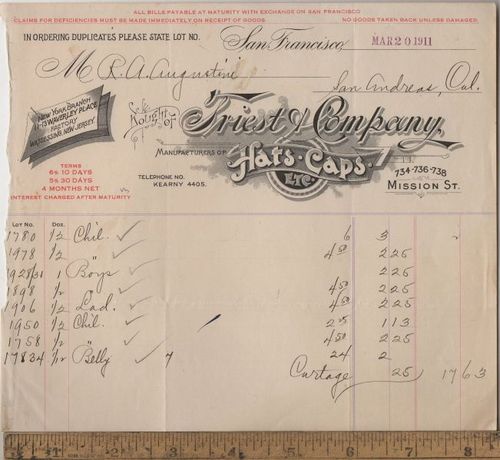 ALL BILLS PAYABLE AT MATURITY WITH EXCHANGE ON SAN FRANCISCO
CLAIMS FOR DEFICIENCIES MUST BE MADE IMMEDIATELY ON RECEIPT OF GOODS. NO GOODS TAKEN BACK UNLESS DAMAGED.
IN ORDERING DUPLICATES PLEASE STATE LOT NO. San Francisco MAR 20 1911
M R. A. Augustine
San Andreas, Cal.
NEW YORK BRANCH
1-13 WAVERLEY PLACE
FACTORY
MATTESSING, NEW JERSEY.
Bought of Triest & Company,
MANUFACTURERS OF Hats - Caps -
ETC.
TELEPHONE NO.
KEARNY 4405.
734-736-738
MISSION ST.
TERMS
6% 10 DAYS
5% 30 DAYS
4 MONTHS NET
INTEREST CHARGED AFTER MATURITY
LOT NO. DOZ.
1780 1/2 Chil. 6 3
1978 1/2 " 4 50 2 25
1928/31 1 Boys 2 25
1898 1/2 " 4 50 2 25
1906 1/2 Lad. 4 50 2 25
1950 1/2 Chil. 2 25 1 13
1758 1/2 " 4 50 2 25
17834 1/12 Belly 7 24 2
Cartage 25 17 63
1 2 3 4 5 6 7 8